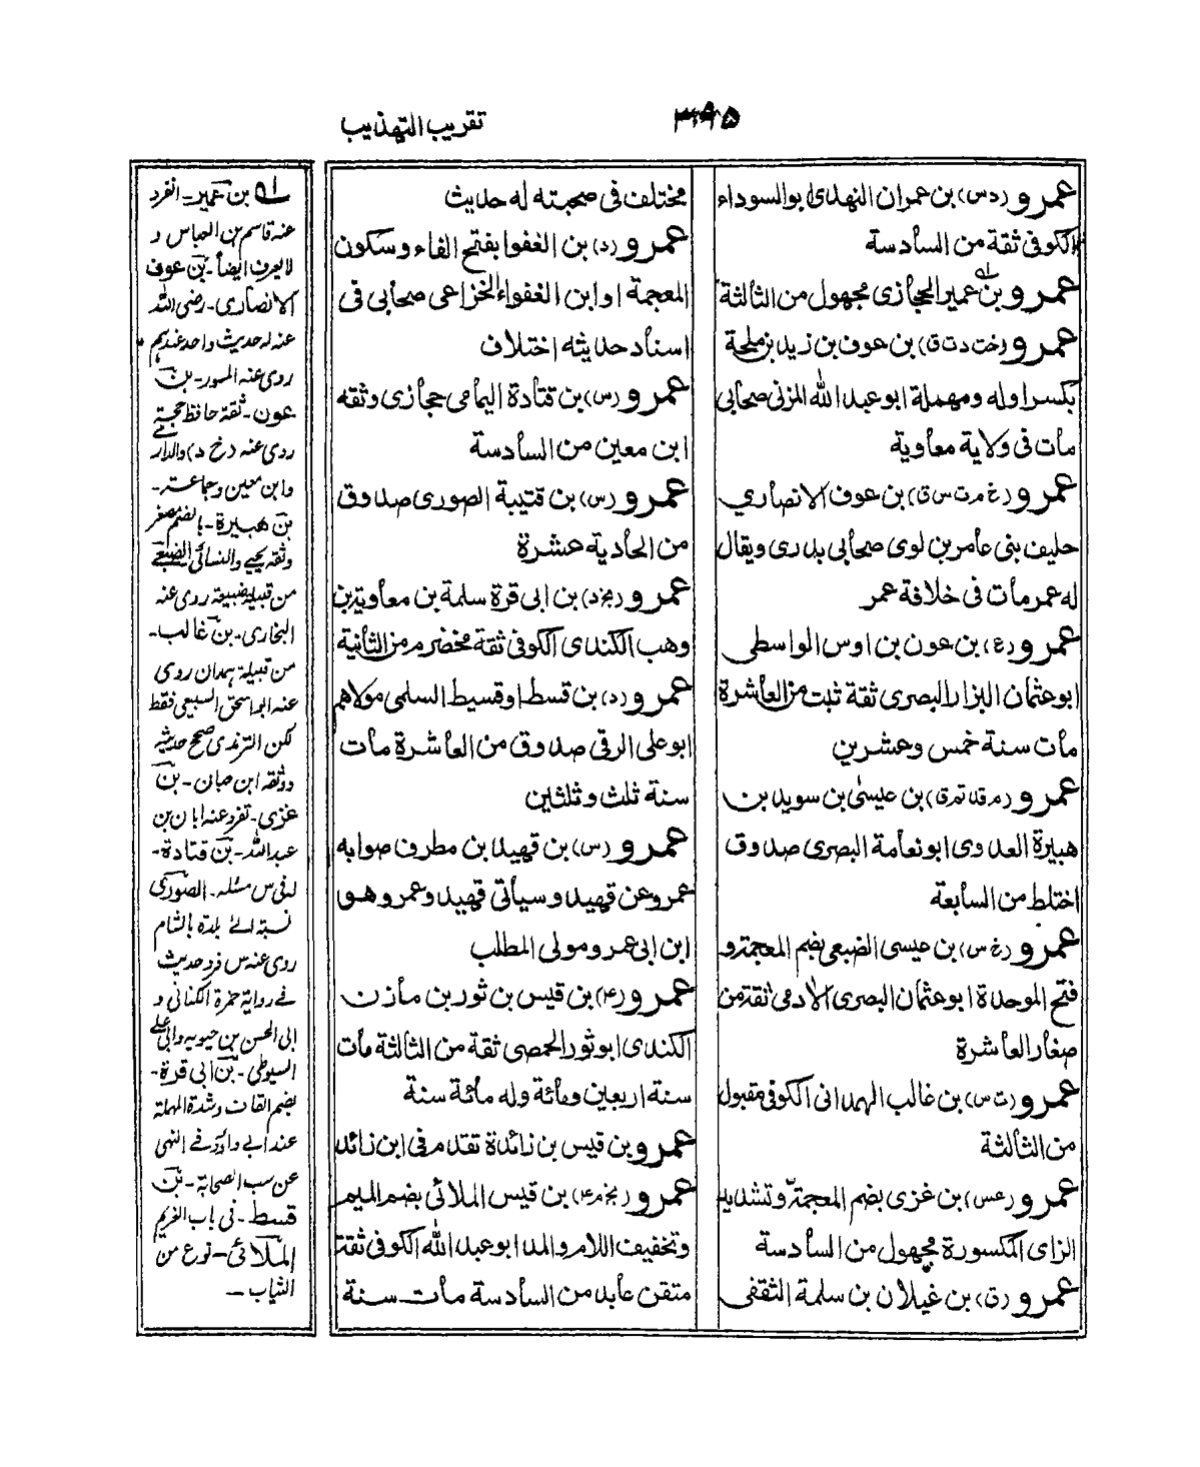 تقريب التهذيب
٣٩٥
عمرو (د س) بن عمران النهدى ابو السوداء
الكوفى ثقة من السادسة
عمرو بن عمير الحجازى مجهول من الثالثة
عمرو (خت د ت ق) بن عوف بن زيد بن ملحة
بكسر اوله ومهملة ابو عبد الله المزنى صحابى
مات فى ولاية معاوية
عمرو (خ م ت س ق) بن عوف الانصاري
حليف بنى عامر بن لوى صحابى بدرى ويقال
له عمر مات فى خلافة عمر
عمرو (ع) بن عون بن اوس الواسطى
ابو عثمان البزاز البصرى ثقة ثبت من العاشرة
مات سنة خمس وعشرين
عمرو (م قد تم ق) بن عيسىٰ بن سويد بن
هبيرة العدوى ابو نعامة البصرى صدوق
اختلط من السابعة
عمرو (خ س) بن عيسى الضبعى بضم المعجمة و
فتح الموحدة ابو عثمان البصرى الادمى ثقة من
صغار العاشرة
عمرو (ت س) بن غالب الهمدانى الكوفى مقبول
من الثالثة
عمرو (عس) بن غزى بضم المعجمة وتشديد
الزاى المكسورة مجهول من السادسة
عمرو (ق) بن غيلان بن سلمة الثقفى
مختلف فى صحبته له حديث
عمرو (د) بن الغفوا بفتح الفاء وسكون
المعجمة او ابن الغفواء الخزاعى صحابى فى
اسناد حديثه اختلاف
عمرو (س) بن قتادة اليمامى حجازى وثقه
ابن معين من السادسة
عمرو (س) بن قتيبة الصورى صدوق
من الحادية عشرة
عمرو (بخ د) بن ابى قرة سلمة بن معاوية بن
وهب الكندى الكوفى ثقة مخضرم من الثانية
عمرو (د) بن قسط او قسيط السلمى مولاهم
ابو على الرقى صدوق من العاشرة مات
سنة ثلث وثلثين
عمرو (س) بن قهيد بن مطرف صوابه
عمرو عن قهيد وسيأتى قهيد وعمرو هو
ابن ابى عمرو مولى المطلب
عمرو (۴) بن قيس بن ثور بن مازن
الكندى ابو ثور الحمصى ثقة من الثالثة مات
سنة اربعين ومائة وله مائة سنة
عمرو بن قيس بن زائدة تقدم فى ابن زائد
عمرو (بخ م ۴) بن قيس الملائى بضم الميم
وتخفيف اللام والمد ابو عبد الله الكوفى ثقة
متقن عابد من السادسة مات سنة
لـه بن عمير ـ انفرد
عنه قاسم بن العباس و
لا يعرف ايضاً ـ بن عوف
الانصاري ـ رضى الله
عنه له حديث واحد عندهم
روى عنه المسور ـ بن
عون ـ ثقة حافظ حجة
روى عنه (خ د) والدارمے
وابن معين وجماعة ـ
بن هبيرة ـ بالضم مصغر
وثقه يحيے والنسائى الضبعے
من قبيلة ضبيعة روى عنه
البخارى ـ بن غالب ـ
من قبيلة همدان روى
عنه ابو اسحق السبيعى فقط
لكن الترمذى صحح حديثه
ووثقه ابن حبان ـ بن
غزى ـ تفرد عنه ابان بن
عبد الله ـ بن قتادة ـ
له فى س مسئله ـ الصورى
نسبة الے بلدة بالشام
روى عنه س فرد حديث
فے رواية حمزة الكنانى و
ابى الحسن بن حيويه وابى على
السيوطى ـ بن ابى قرة ـ
بضم القاف وشدة المهملة
عند ابے داؤد فے النهى
عن سب الصحابة ـ بن
قسط ـ فى باب الغريم
الملائى ـ نوع من
الثياب ـ